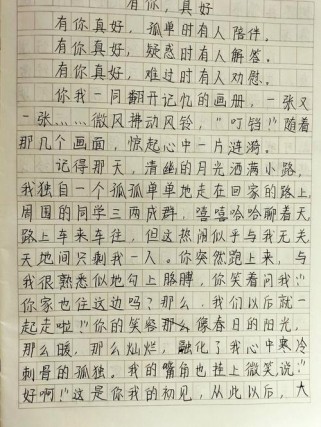 有你，真好
有你真好，孤单时有人陪伴。
有你真好，疑惑时有人解答。
有你真好，难过时有人劝慰。
你我一同翻开记忆的画册，一张又
一张……微风拂动风铃，“叮铛！”随着
那几个画面，惊起心中一片涟漪。
记得那天，清幽的月光洒满小路，
我独自一个孤孤单单地走在回家的路上，
周围的同学三两成群，嘻嘻哈哈聊着天，
路上车来车往，但这热闹似乎与我无关，
天地间只剩我一人。你突然跑上来，与
我很熟悉似地勾上胳膊，你笑着问我：“
你家也住这边吗？那么，我们以后就一
起走啦！”你的笑容那么像春日的阳光，
那么暖，那么灿烂，融化了我心中寒冷
刺骨的孤独。我的嘴角也挂上微笑说：“
好啊！”这是你我的初见，从此以后，大